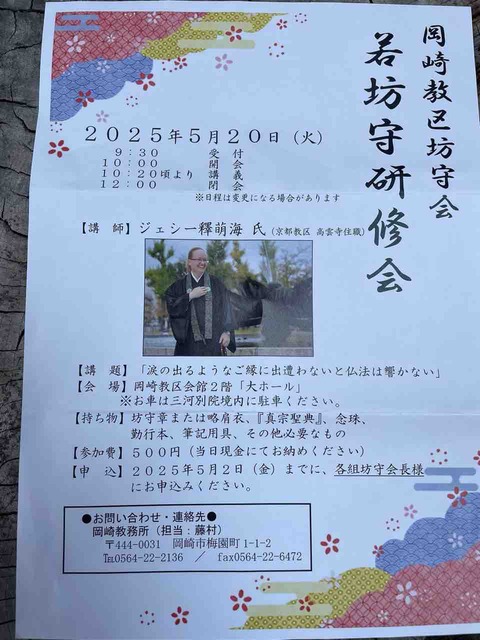 岡崎教区坊守会
若坊守研修会
2025年5月20日（火）
9：30 受付
10：00 開会
10：20頃より 講義
12：00 閉会
※日程は変更になる場合があります
【講　師】ジェシー釋萌海 氏（京都教区 高雲寺住職）
【講　題】「涙の出るようなご縁に出遭わないと仏法は響かない」
【会　場】岡崎教区会館２階「大ホール」
※お車は三河別院境内に駐車ください。
【持ち物】坊守章または略肩衣、『真宗聖典』、念珠、
勤行本、筆記用具、その他必要なもの
【参加費】５００円（当日現金にてお納めください）
【申　込】２０２５年５月２日（金）までに、各組坊守会長様
にお申込みください。
●お問い合わせ・連絡先●
岡崎教務所（担当：藤村）
〒444-0031　岡崎市梅園町1-1-2
℡0564-22-2136　／　fax0564-22-6472